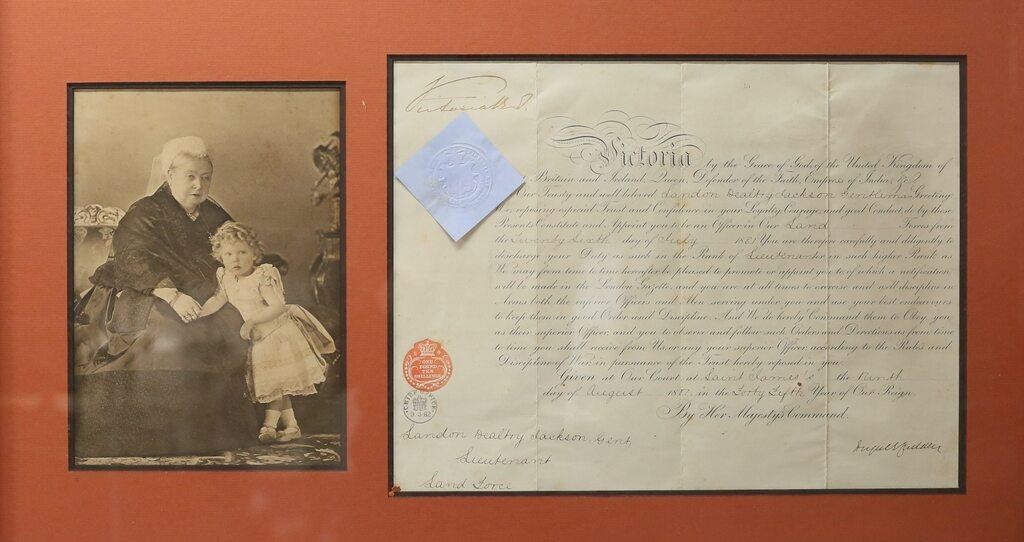 Victoria R.I.
Victoria by the Grace of God, of the United Kingdom of
Britain and Ireland, Queen, Defender of the Faith, Empress of India, &c.
Our Trusty and well beloved Landon Dealtry Jackson Gentleman Greeting
We, reposing especial Trust and Confidence in your Loyalty, Courage, and good Conduct, do by these
Presents Constitute and Appoint you to be an Officer in Our Land Forces from
the Twenty Sixth day of July 1881 You are therefore carefully and diligently to
discharge your Duty as such in the Rank of Lieutenant or in such higher Rank as
We may from time to time hereafter be pleased to promote or appoint you to, of which a notification
will be made in the London Gazette, and you are at all times to exercise and well discipline in
Arms both the inferior Officers and Men serving under you and use your best endeavours
to keep them in good Order and Discipline. And We do hereby Command them to Obey you
as their superior Officer, and you to observe and follow such Orders and Directions as from time
to time you shall receive from Us, or any your superior Officer, according to the Rules and
Discipline of War, in pursuance of the Trust hereby reposed in you.
Given at Our Court, at Saint James's the Ninth
day of August in the Forty Fifth Year of Our Reign
By Her Majesty's Command.
ONE
POUND
TEN
SHILLINGS
Landon Dealtry Jackson, Gent,
Lieutenant
Land Force